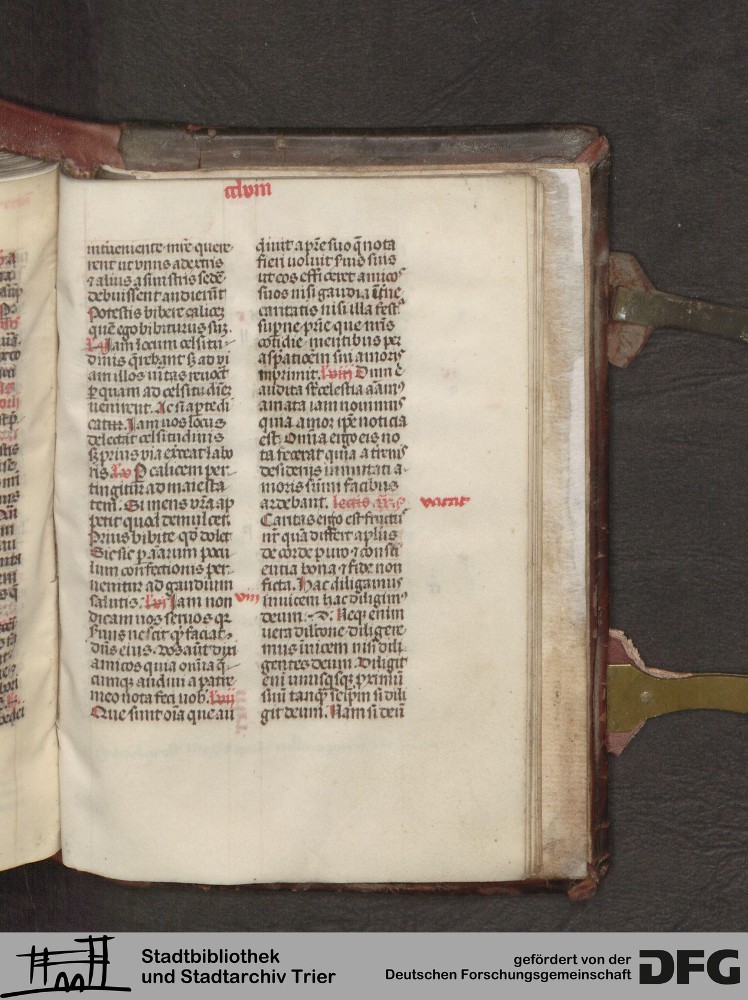 cclviii
intueniente mr̄e quere
rent ut vnus ad extris
⁊ alius a sinistris sede
debuissent audierūt
Potestis bibere calicē
quē ego bibiturus sū.
lv Iam locum celsitu
dinis q̄rebant s; ad vi
am illos ueritas reuocat
ꝑ quam ad celsitudinē
uenirent. Ac si aperte di
catur. Iam uos locus
delectat celsitudinis
s; prius via exerceat labo
ris. lv P calicem per
tingitur ad maiesta
tem. Si mens vr̄a ap
petit quod demulcet.
Prius bibite qd dolet
Sic sic ꝑ amarum pocu
lum confectionis per
uenitur ad gaudium
salutis. lvi Iam non
dicam uos seruos qr
seruus nescit qd faciat
dn̄s eius. vos aut dixi
amicos quia omīa q̄
cumqꝫ audiui a patre
meo nota feci uob. lvii
Que sunt oīa que au
diuit a pr̄e suo q̄ nota
fieri uoluit seruis suis
ut eos efficeret amicos
suos nisi gaudia īterne
caritatis nisi illa festa
suꝑne pr̄ie que nr̄is
cotidie mentibus per
aspirationem sui amoris
imprimit. lviii Dum ē
audita suꝑcelestia amam
amata iam nouimus
quia amor ip̄e noticia
est. Omīa ergo eis no
ta fecerat quia a terrenis
desiderijs inmutati a
moris sūmi facibus
ardebant. lectis
Caritas ergo est fructus
nr̄ quā diffinit ap̄lus
de corde puro ⁊ consci
entia bona ⁊ fide non
ficta. Hac diligamus
viii
inuicem hac diligimus
deum. Neqꝫ enim
uera dilcōne diligere
mus inuicem nisi dili
gentes deum. Diligit
enī unusqsqꝫ proximū
suū tanqꝫ seip̄m si dili
git deum. Nam si deū
Stadtbibliothek
und Stadtarchiv Trier
gefördert von der
Deutschen Forschungsgemeinschaft
DFG